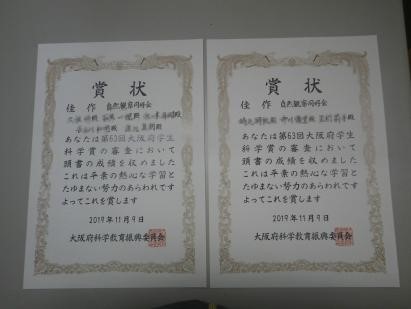 賞状
佳作 自然観察同好会
殿 殿 殿
殿 殿
あなたは第63回大阪府学生
科学賞の審査において
頭書の成績を収めました
これは平素の熱心な学習と
たゆまない努力のあらわれです
よってこれを賞します
2019年11月9日
大阪府科学教育振興委員会
賞状
佳作 自然観察同好会
殿 殿 殿
あなたは第63回大阪府学生
科学賞の審査において
頭書の成績を収めました
これは平素の熱心な学習と
たゆまぬ努力のあらわれです
よってこれを賞します
2019年11月9日
大阪府科学教育振興委員会